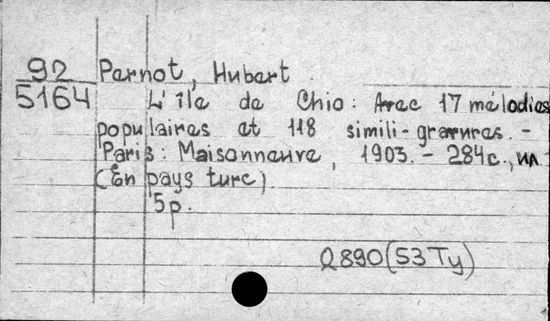 92
5164
Pernot, Hubert.
L'île de Chio: Avec 17 mélodies
populaires et 118 simili-gravures. -
Paris: Maisonneuve, 1903. - 284c., ил
(En pays turc).
5p.
Q890(53Ty)